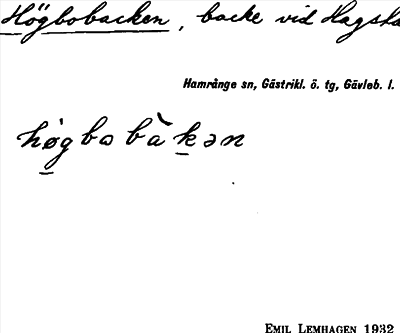 Högbobacken, backe vid
Hamrånge sn, Gästrikl. ö. tg, Gävleb. l.
hø̀gbobàkən
EMIL LEMHAGEN 1932